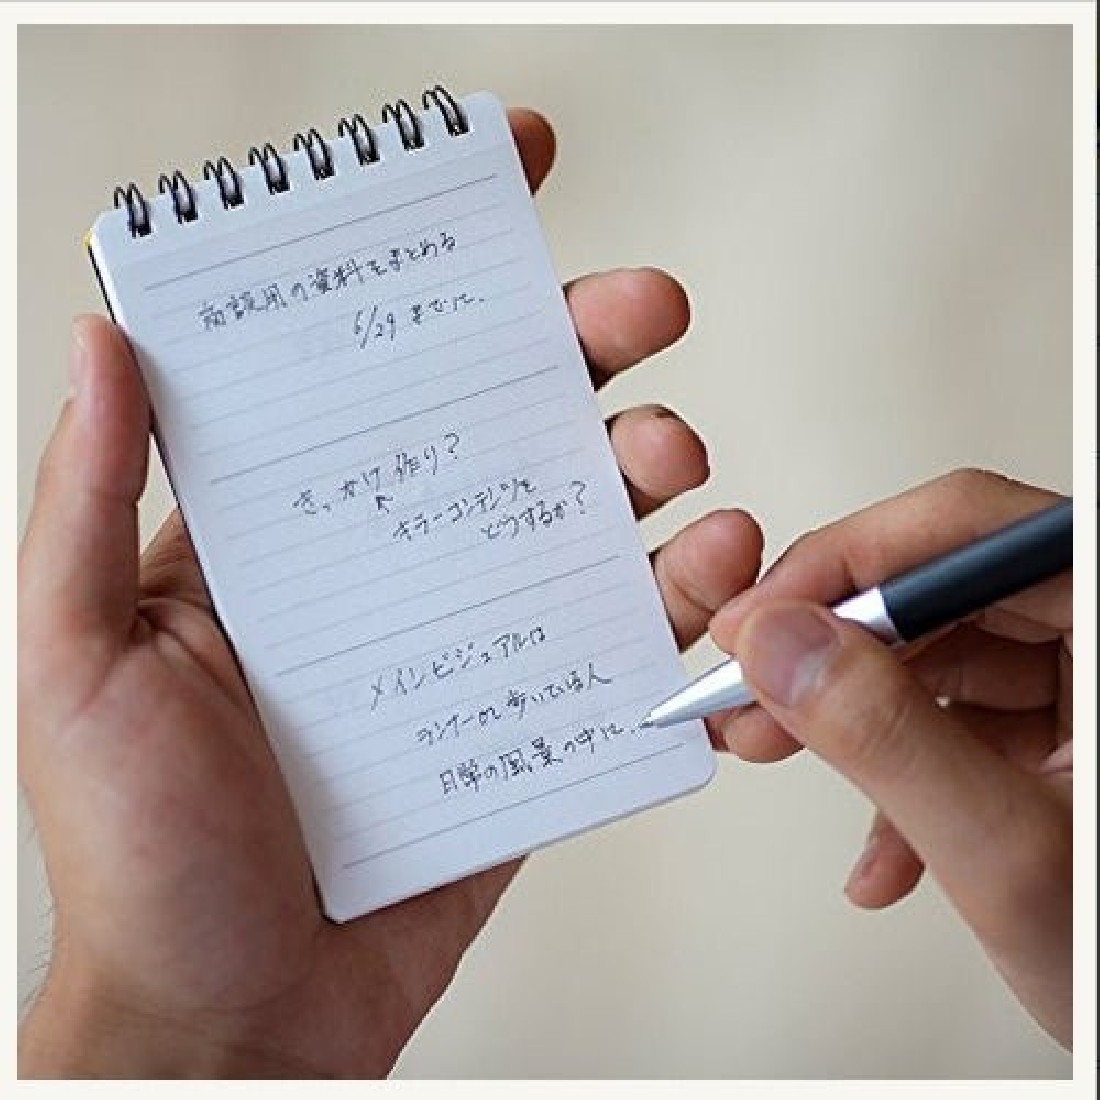 商談用の資料をまとめる
6/29 までに.
きっかけ作り?
↖
キラーコンテンツを
どうするか?
メインビジュアルは
ランナーor歩いてる人
日常の風景の中に..